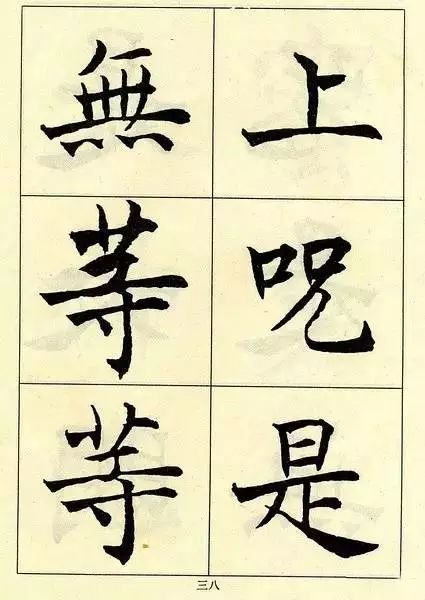 上呪是
無等等
三八